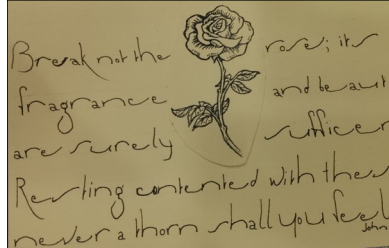 Break not the rose; its
fragrance and beaut
are surely sufficer
Resting contented with thes
never a thorn shall you feel
John